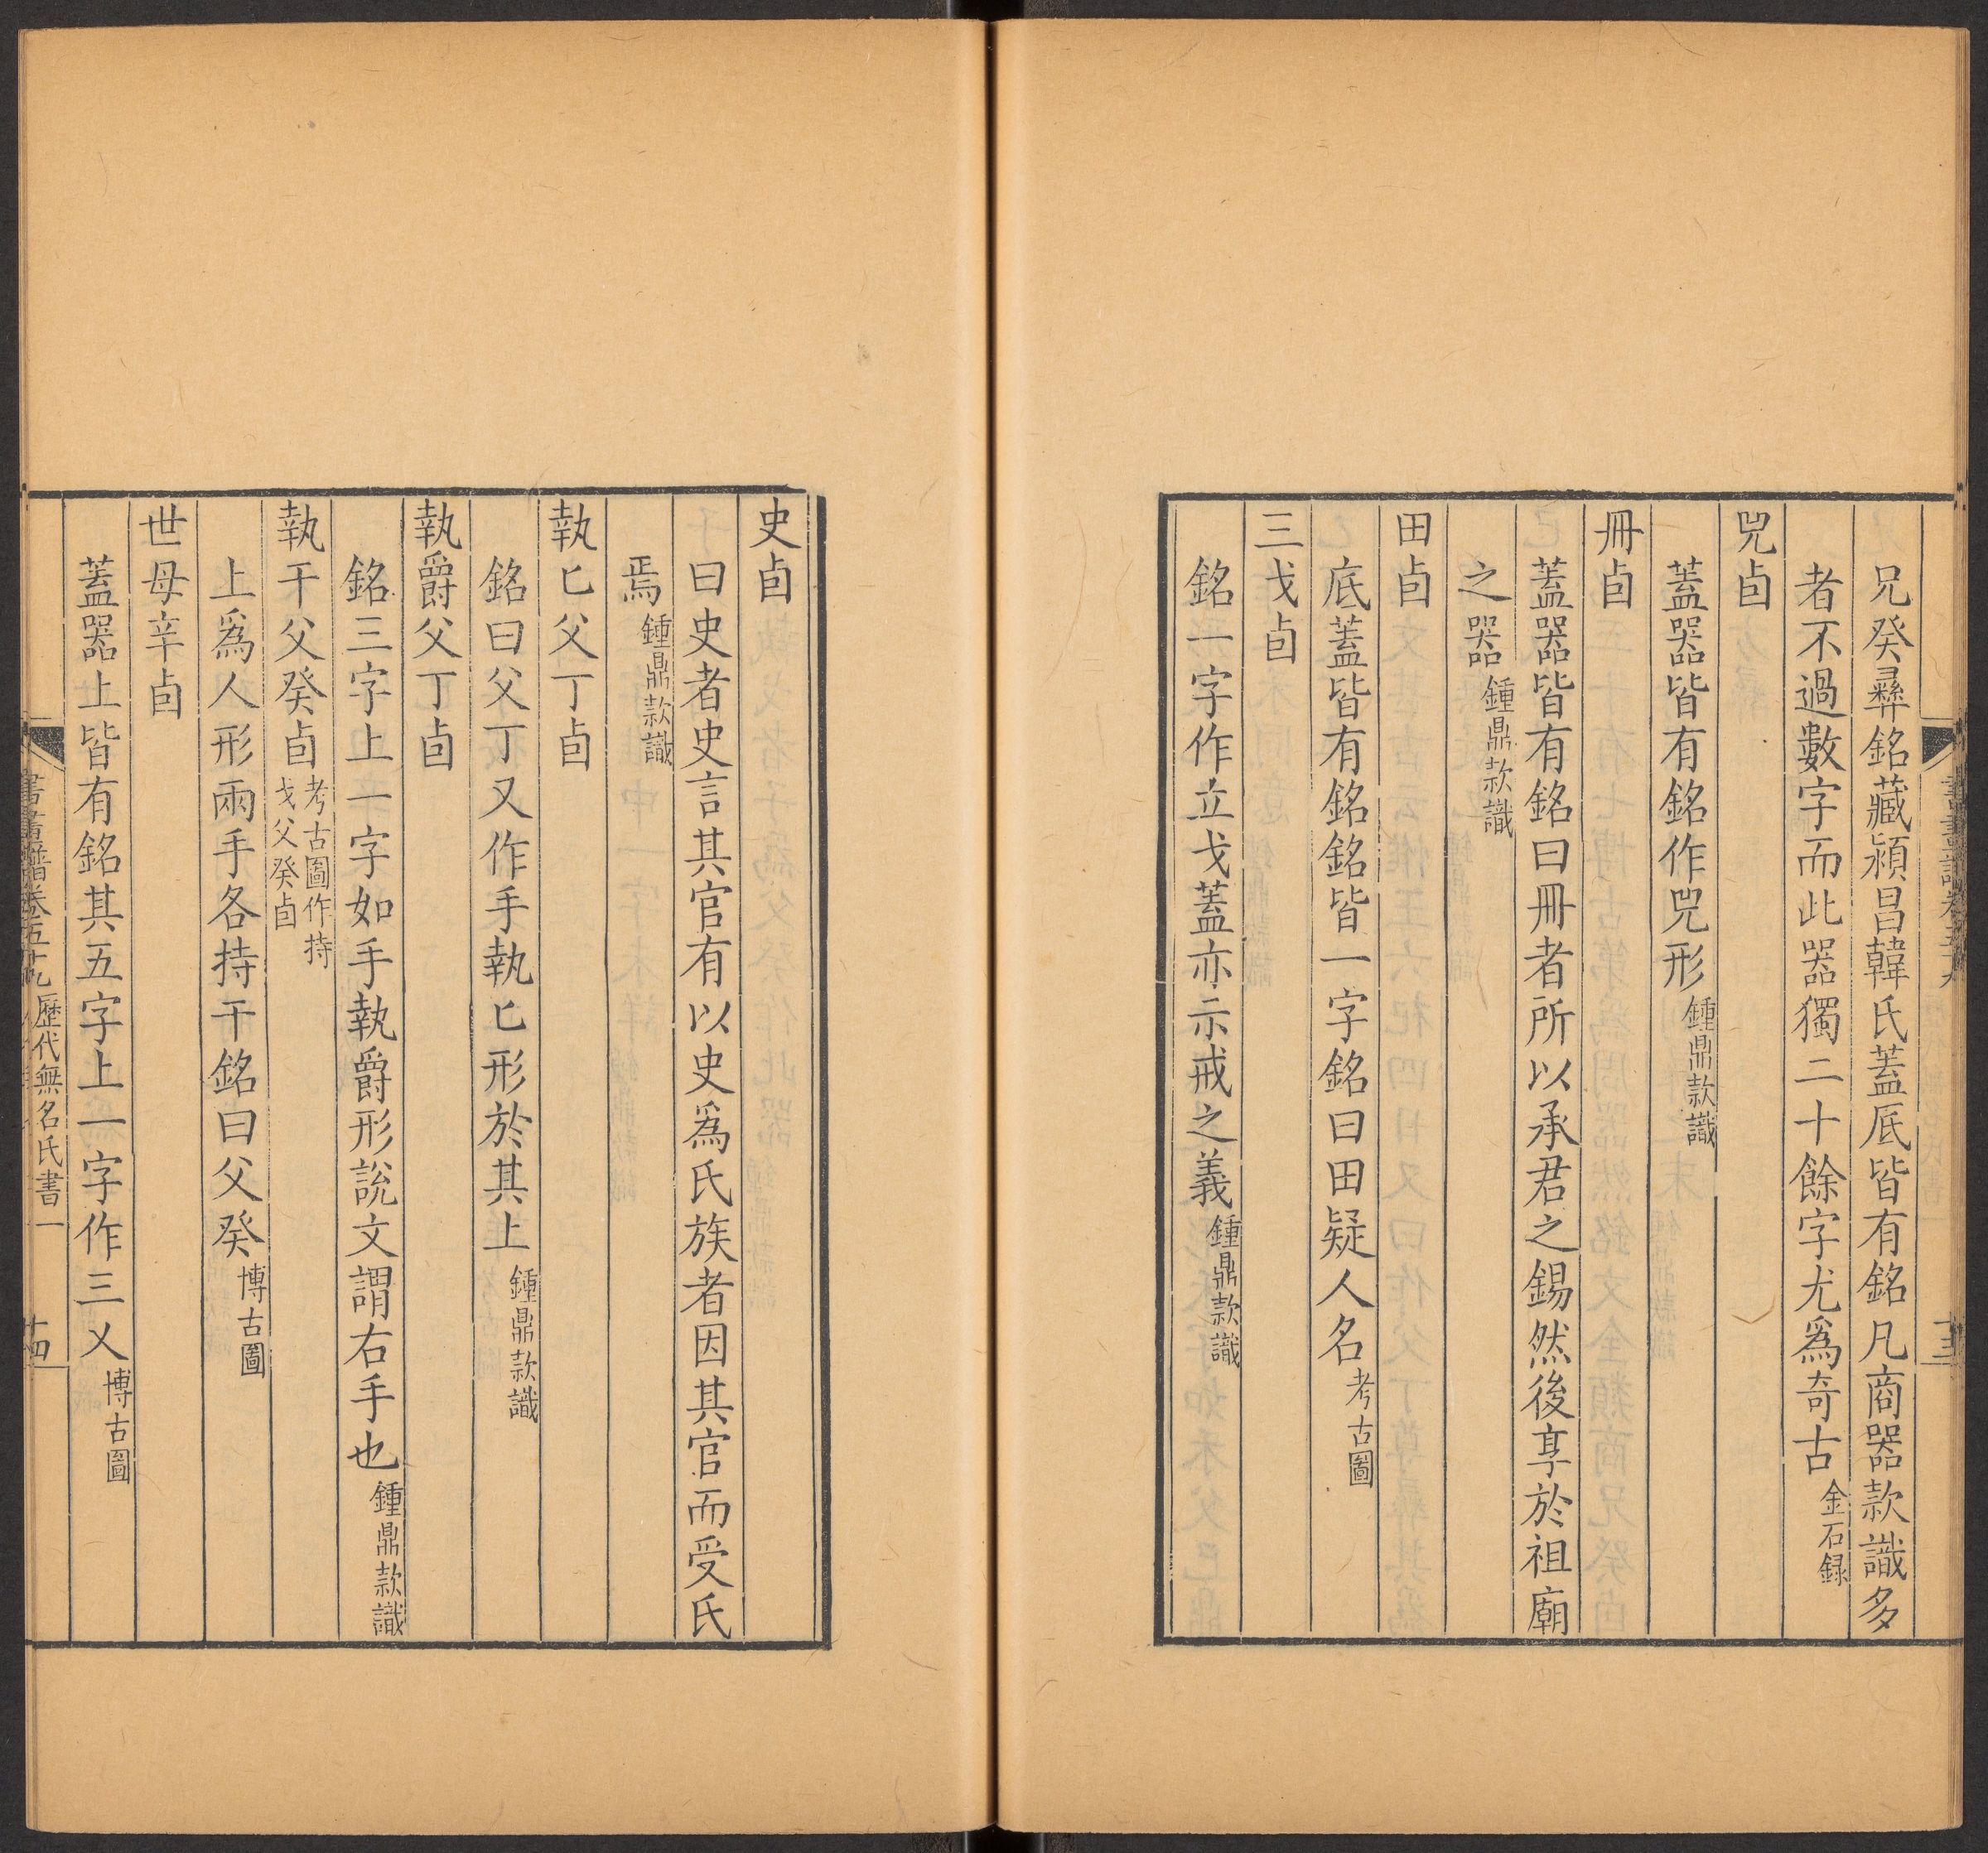 兄癸彛銘藏潁昌韓氏蓋底皆有銘凡商器款識多
者不過數字而此器獨二十餘字尤爲竒古金石録
兕卣
蓋器皆有銘作兕形鍾鼎款識
冊卣
蓋器皆有銘曰冊者所以承君之錫然後享於祖廟
之器鍾鼎款識
田卣
底蓋皆有銘銘皆一字銘曰田疑人名考古圖
三戈卣
銘一字作立戈蓋亦示戒之義鍾鼎款識
史卣
曰史者史言其官有以史爲氏族者因其官而受氏
焉鍾鼎款識
執匕父丁卣
銘曰父丁又作手執匕形於其上鍾鼎款識
執爵父丁卣
銘三字上一字如手執爵形說文謂右手也鍾鼎款識
執干父癸卣考古圖作持
戈父癸卣
上爲人形兩手各持干銘曰父癸博古圖
世母辛卣
蓋器上皆有銘其五字上一字作三乂博古圖
書畫譜卷五十九 歷代無名氏書一 十四